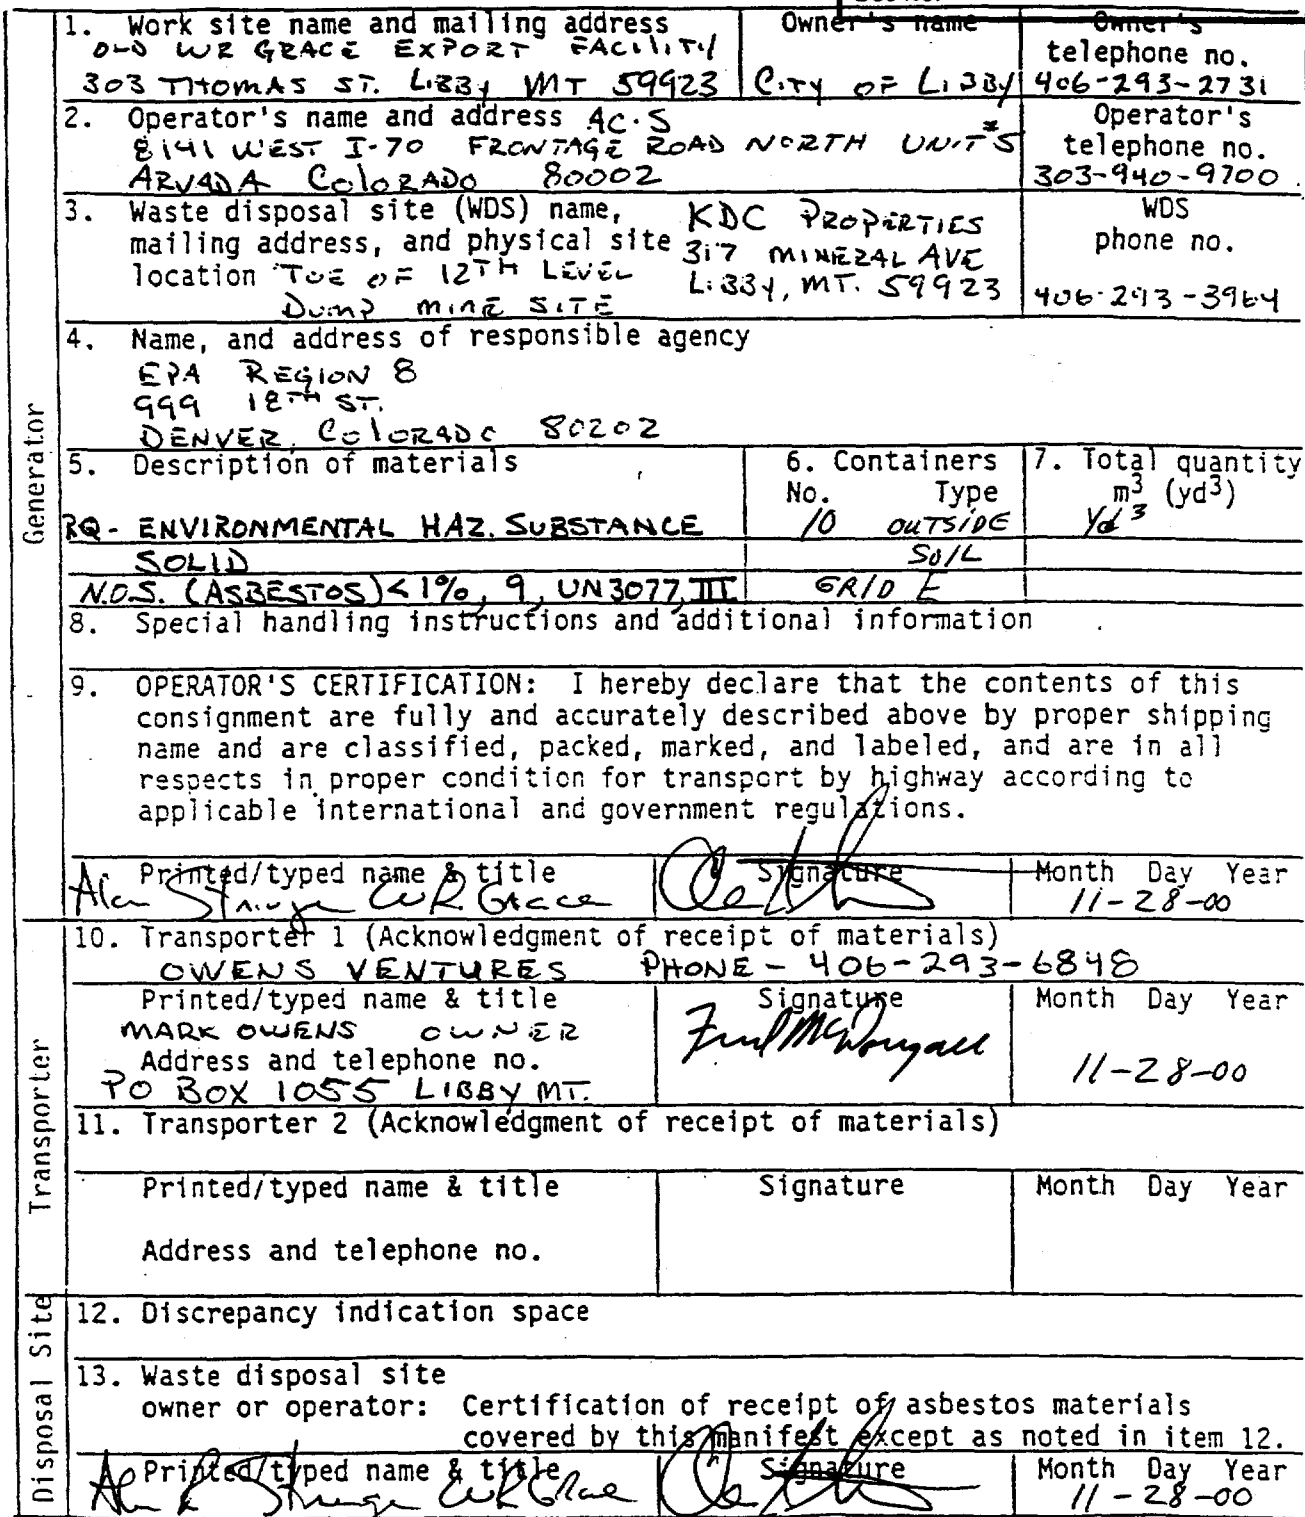 1. Work site name and mailing address
OLD WR GRACE EXPORT FACILITY
303 THOMAS ST. LIBBY MT 59923
Owner's name
CITY OF LIBBY
Owner's telephone no.
406-293-2731
2. Operator's name and address AC.S
8141 WEST I-70 FRONTAGE ROAD NORTH UNIT #5
ARVADA COLORADO 80002
Operator's telephone no.
303-940-9700
3. Waste disposal site (WDS) name,
mailing address, and physical site
location TOE OF 12TH LEVEL
DUMP MINE SITE
KDC PROPERTIES
317 MINERAL AVE
LIBBY, MT. 59923
WDS
phone no.
406-293-3964
4. Name, and address of responsible agency
EPA REGION 8
999 18TH ST.
DENVER, COLORADO 80202
Generator
5. Description of materials
6. Containers
No. Type
7. Total quantity
m³ (yd³)
RQ - ENVIRONMENTAL HAZ. SUBSTANCE
10 OUTSIDE
Yd³
SOLID
SOIL
N.O.S. (ASBESTOS) < 1%, 9, UN3077, III
GRID E
8. Special handling instructions and additional information
9. OPERATOR'S CERTIFICATION: I hereby declare that the contents of this
consignment are fully and accurately described above by proper shipping
name and are classified, packed, marked, and labeled, and are in all
respects in proper condition for transport by highway according to
applicable international and government regulations.
Printed/typed name & title
Alan Stringer WR Grace
Signature
Month Day Year
11-28-00
Transporter
10. Transporter 1 (Acknowledgment of receipt of materials)
OWENS VENTURES PHONE - 406-293-6848
Printed/typed name & title
MARK OWENS OWNER
Address and telephone no.
PO BOX 1055 LIBBY MT.
Signature
McDougall
Month Day Year
11-28-00
11. Transporter 2 (Acknowledgment of receipt of materials)
Printed/typed name & title
Signature
Month Day Year
Address and telephone no.
Disposal Site
12. Discrepancy indication space
13. Waste disposal site
owner or operator: Certification of receipt of asbestos materials
covered by this manifest except as noted in item 12.
Printed/typed name & title
Alan R Stringer WR Grace
Signature
Month Day Year
11-28-00